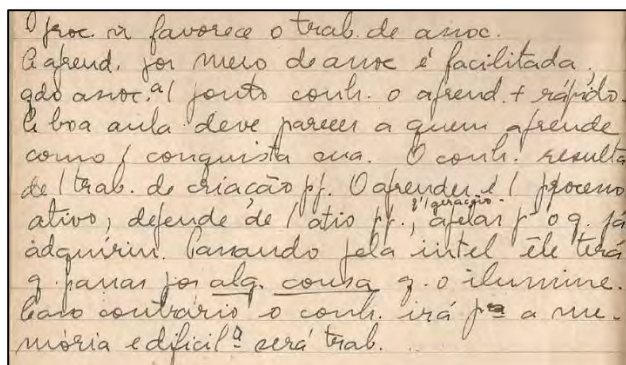 O proc. ñ favorece o trab. de assoc.
A aprend. por meio de assoc é facilitada,
qdo assoc. a / ponto conh. o aprend. + rápido.
A boa aula deve parecer a quem aprende
como / conquista sua. O conh. resulta
de / trab. de criação pp. O aprender é / processo
q'/ geração.
ativo, depende de / ativ pp., apelar p o q. já
adquiriu. Passando pela intel êle terá
q. passar por alg. cousa q. o ilumine.
Caso contrário o conh. irá pª a me-
mória e dificilª será trab.